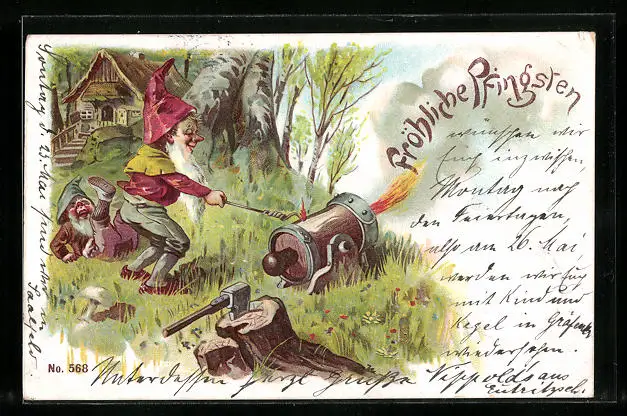 Fröhliche Pfingsten
wünschen wir
Euch inzwischen,
Montag nach
den Feiertagen,
also am 26. Mai
werden wir Euch
mit Kind und
Kegel in
wiedersehen.
Unterdessen herzl Grüße Nippolds aus
Eutritzsch.
Sonntag d. 25. Mai
Saalfeld
No. 568